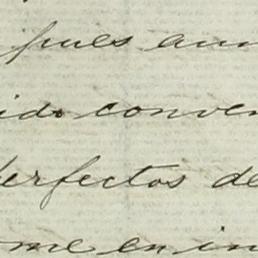 pues aun
ido conven
perfectos de
me en in